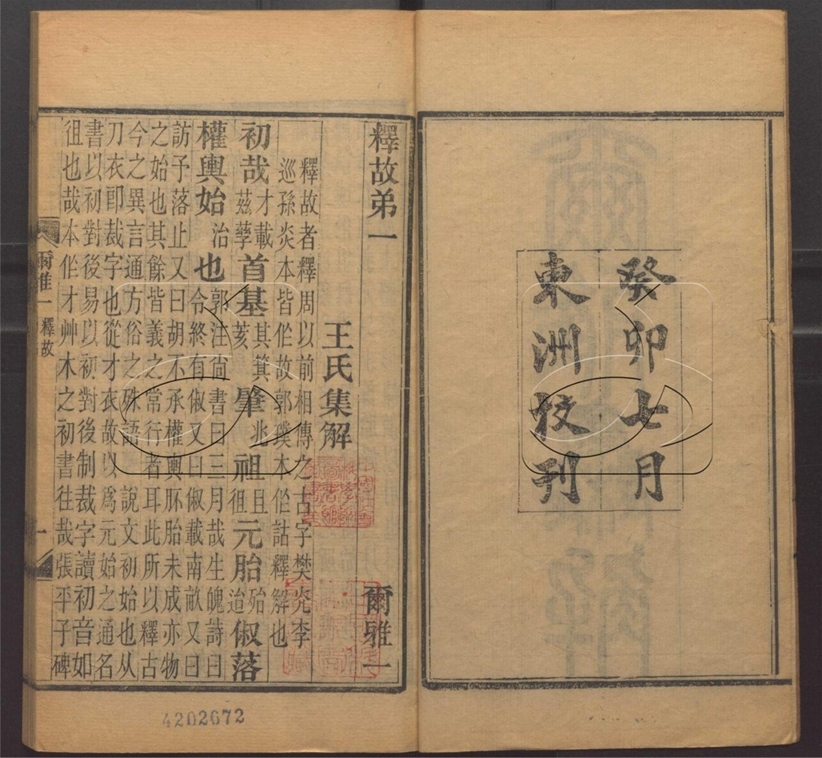 癸卯七月
東洲校刊
釋故弟一 爾雅一
王氏集解
釋故者釋周以前相傳之古字樊光李
巡孫炎本皆作故郭璞本作詁釋解也
初哉才載茲孽首基其箕荄肇兆祖且徂元胎殆迨俶落
權輿始治也郭注尙書曰三月哉生魄詩曰
令終有俶又曰俶載南畝又曰
訪予落止又曰胡不承權輿胚胎未成亦物
之始也其餘皆義之常行者耳此所以釋古
今之異言通方俗之殊語 說文初始也从
刀衣卽裁字也從才衣故以爲元始之通名
書以初對後易以初對後制裁字讀初音如
徂也哉本作才艸木之初書往哉張平子碑
爾雅一 釋故 一
4202672